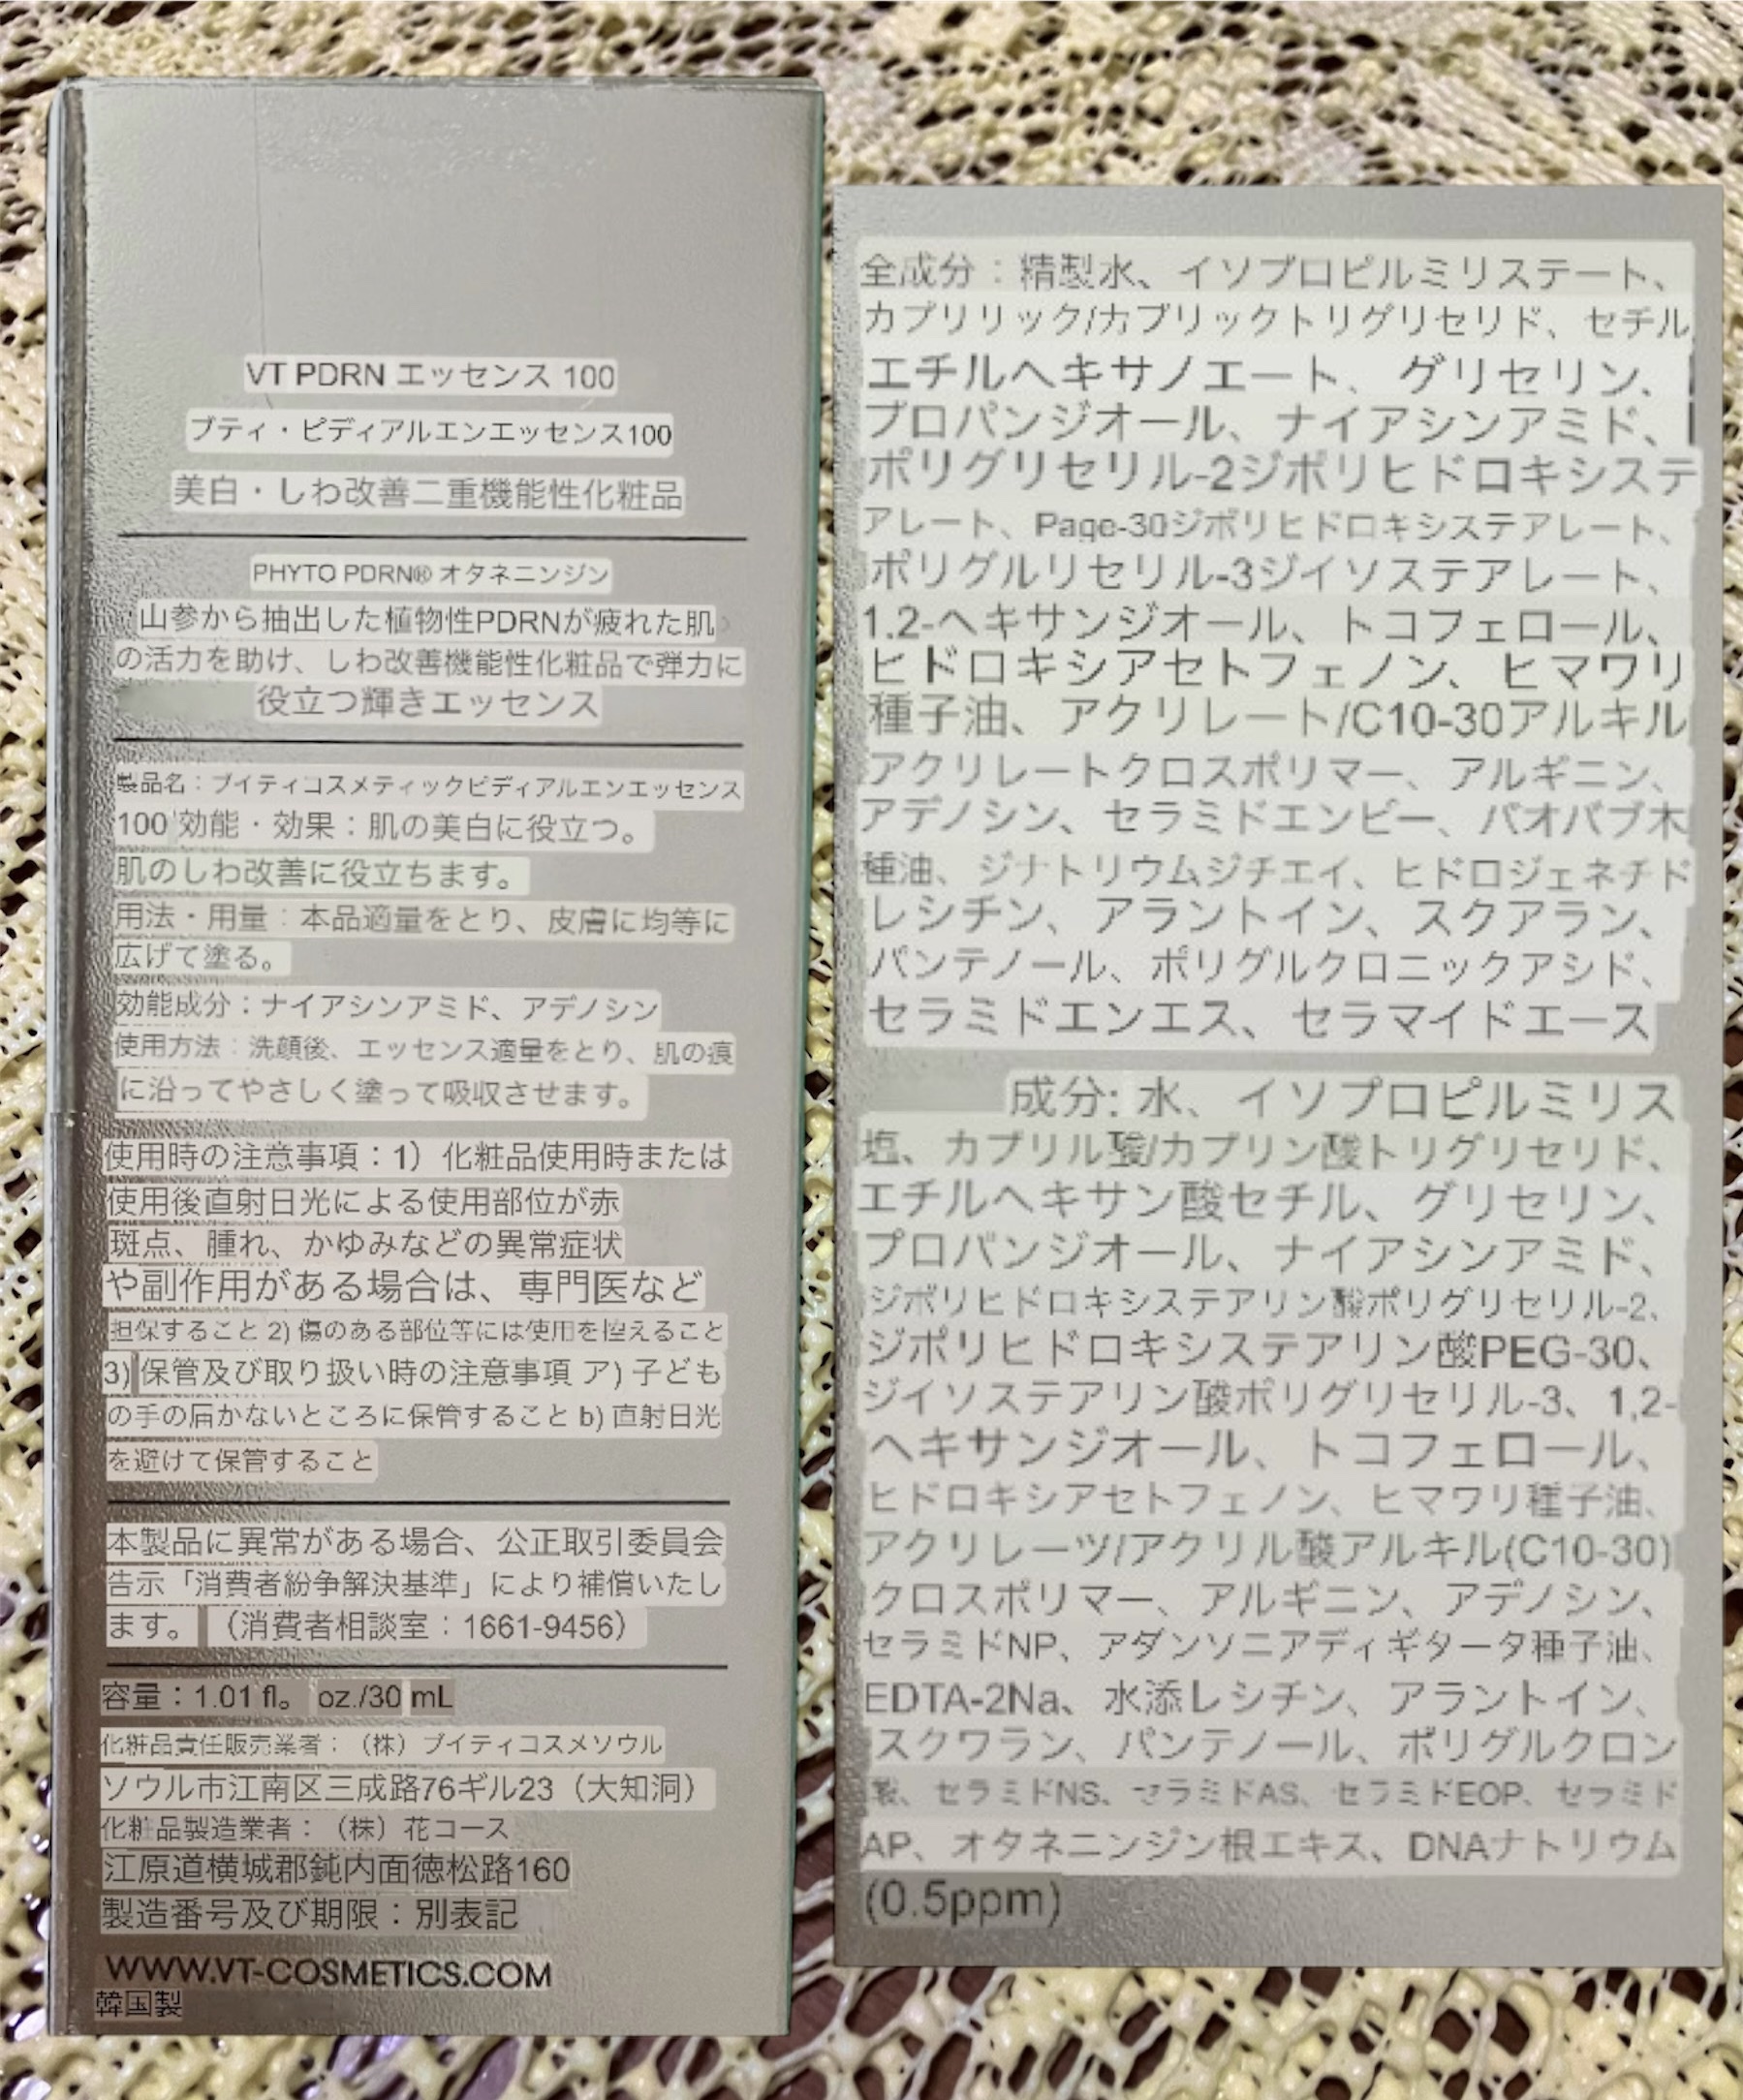 VT PDRN エッセンス 100
ブティ・ピディアルエンエッセンス100
美白・しわ改善二重機能性化粧品
PHYTO PDRN® オタネニンジン
山参から抽出した植物性PDRNが疲れた肌
の活力を助け、しわ改善機能性化粧品で弾力に
役立つ輝きエッセンス
製品名：ブイティコスメティックピディアルエンエッセンス
100 効能・効果：肌の美白に役立つ。
肌のしわ改善に役立ちます。
用法・用量：本品適量をとり、皮膚に均等に
広げて塗る。
効能成分：ナイアシンアミド、アデノシン
使用方法：洗顔後、エッセンス適量をとり、肌の痕
に沿ってやさしく塗って吸収させます。
使用時の注意事項：1）化粧品使用時または
使用後直射日光による使用部位が赤
斑点、腫れ、かゆみなどの異常症状
や副作用がある場合は、専門医など
担保すること 2) 傷のある部位等には使用を控えること
3) 保管及び取り扱い時の注意事項 ア) 子ども
の手の届かないところに保管すること b) 直射日光
を避けて保管すること
本製品に異常がある場合、公正取引委員会
告示「消費者紛争解決基準」により補償いたし
ます。（消費者相談室：1661-9456）
容量：1.01 fl。 oz./30 mL
化粧品責任販売業者：（株）ブイティコスメソウル
ソウル市江南区三成路76ギル23（大知洞）
化粧品製造業者：（株）花コース
江原道横城郡鈍内面徳松路160
製造番号及び期限：別表記
WWW.VT-COSMETICS.COM
韓国製
全成分：精製水、イソプロピルミリステート、
カプリリック/カプリックトリグリセリド、セチル
エチルヘキサノエート、グリセリン、
プロパンジオール、ナイアシンアミド、
ポリグリセリル-2ジポリヒドロキシステ
アレート、Page-30ジポリヒドロキシステアレート、
ポリグルリセリル-3ジイソステアレート、
1.2-ヘキサンジオール、トコフェロール、
ヒドロキシアセトフェノン、ヒマワリ
種子油、アクリレート/C10-30アルキル
アクリレートクロスポリマー、アルギニン、
アデノシン、セラミドエンピー、バオバブ木
種油、ジナトリウムジチエイ、ヒドロジェネチド
レシチン、アラントイン、スクアラン、
パンテノール、ポリグルクロニックアシド、
セラミドエンエス、セラマイドエース
成分: 水、イソプロピルミリス
塩、カプリル酸/カプリン酸トリグリセリド、
エチルヘキサン酸セチル、グリセリン、
プロパンジオール、ナイアシンアミド、
ジポリヒドロキシステアリン酸ポリグリセリル-2、
ジポリヒドロキシステアリン酸PEG-30、
ジイソステアリン酸ポリグリセリル-3、1,2-
ヘキサンジオール、トコフェロール、
ヒドロキシアセトフェノン、ヒマワリ種子油、
アクリレーツ/アクリル酸アルキル(C10-30)
クロスポリマー、アルギニン、アデノシン、
セラミドNP、アダンソニアディギタータ種子油、
EDTA-2Na、水添レシチン、アラントイン、
スクワラン、パンテノール、ポリグルクロン
酸、セラミドNS、セラミドAS、セラミドEOP、セラミド
AP、オタネニンジン根エキス、DNAナトリウム
(0.5ppm)